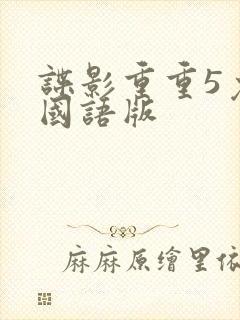 諜影重重5
國語版
麻麻原繪里依